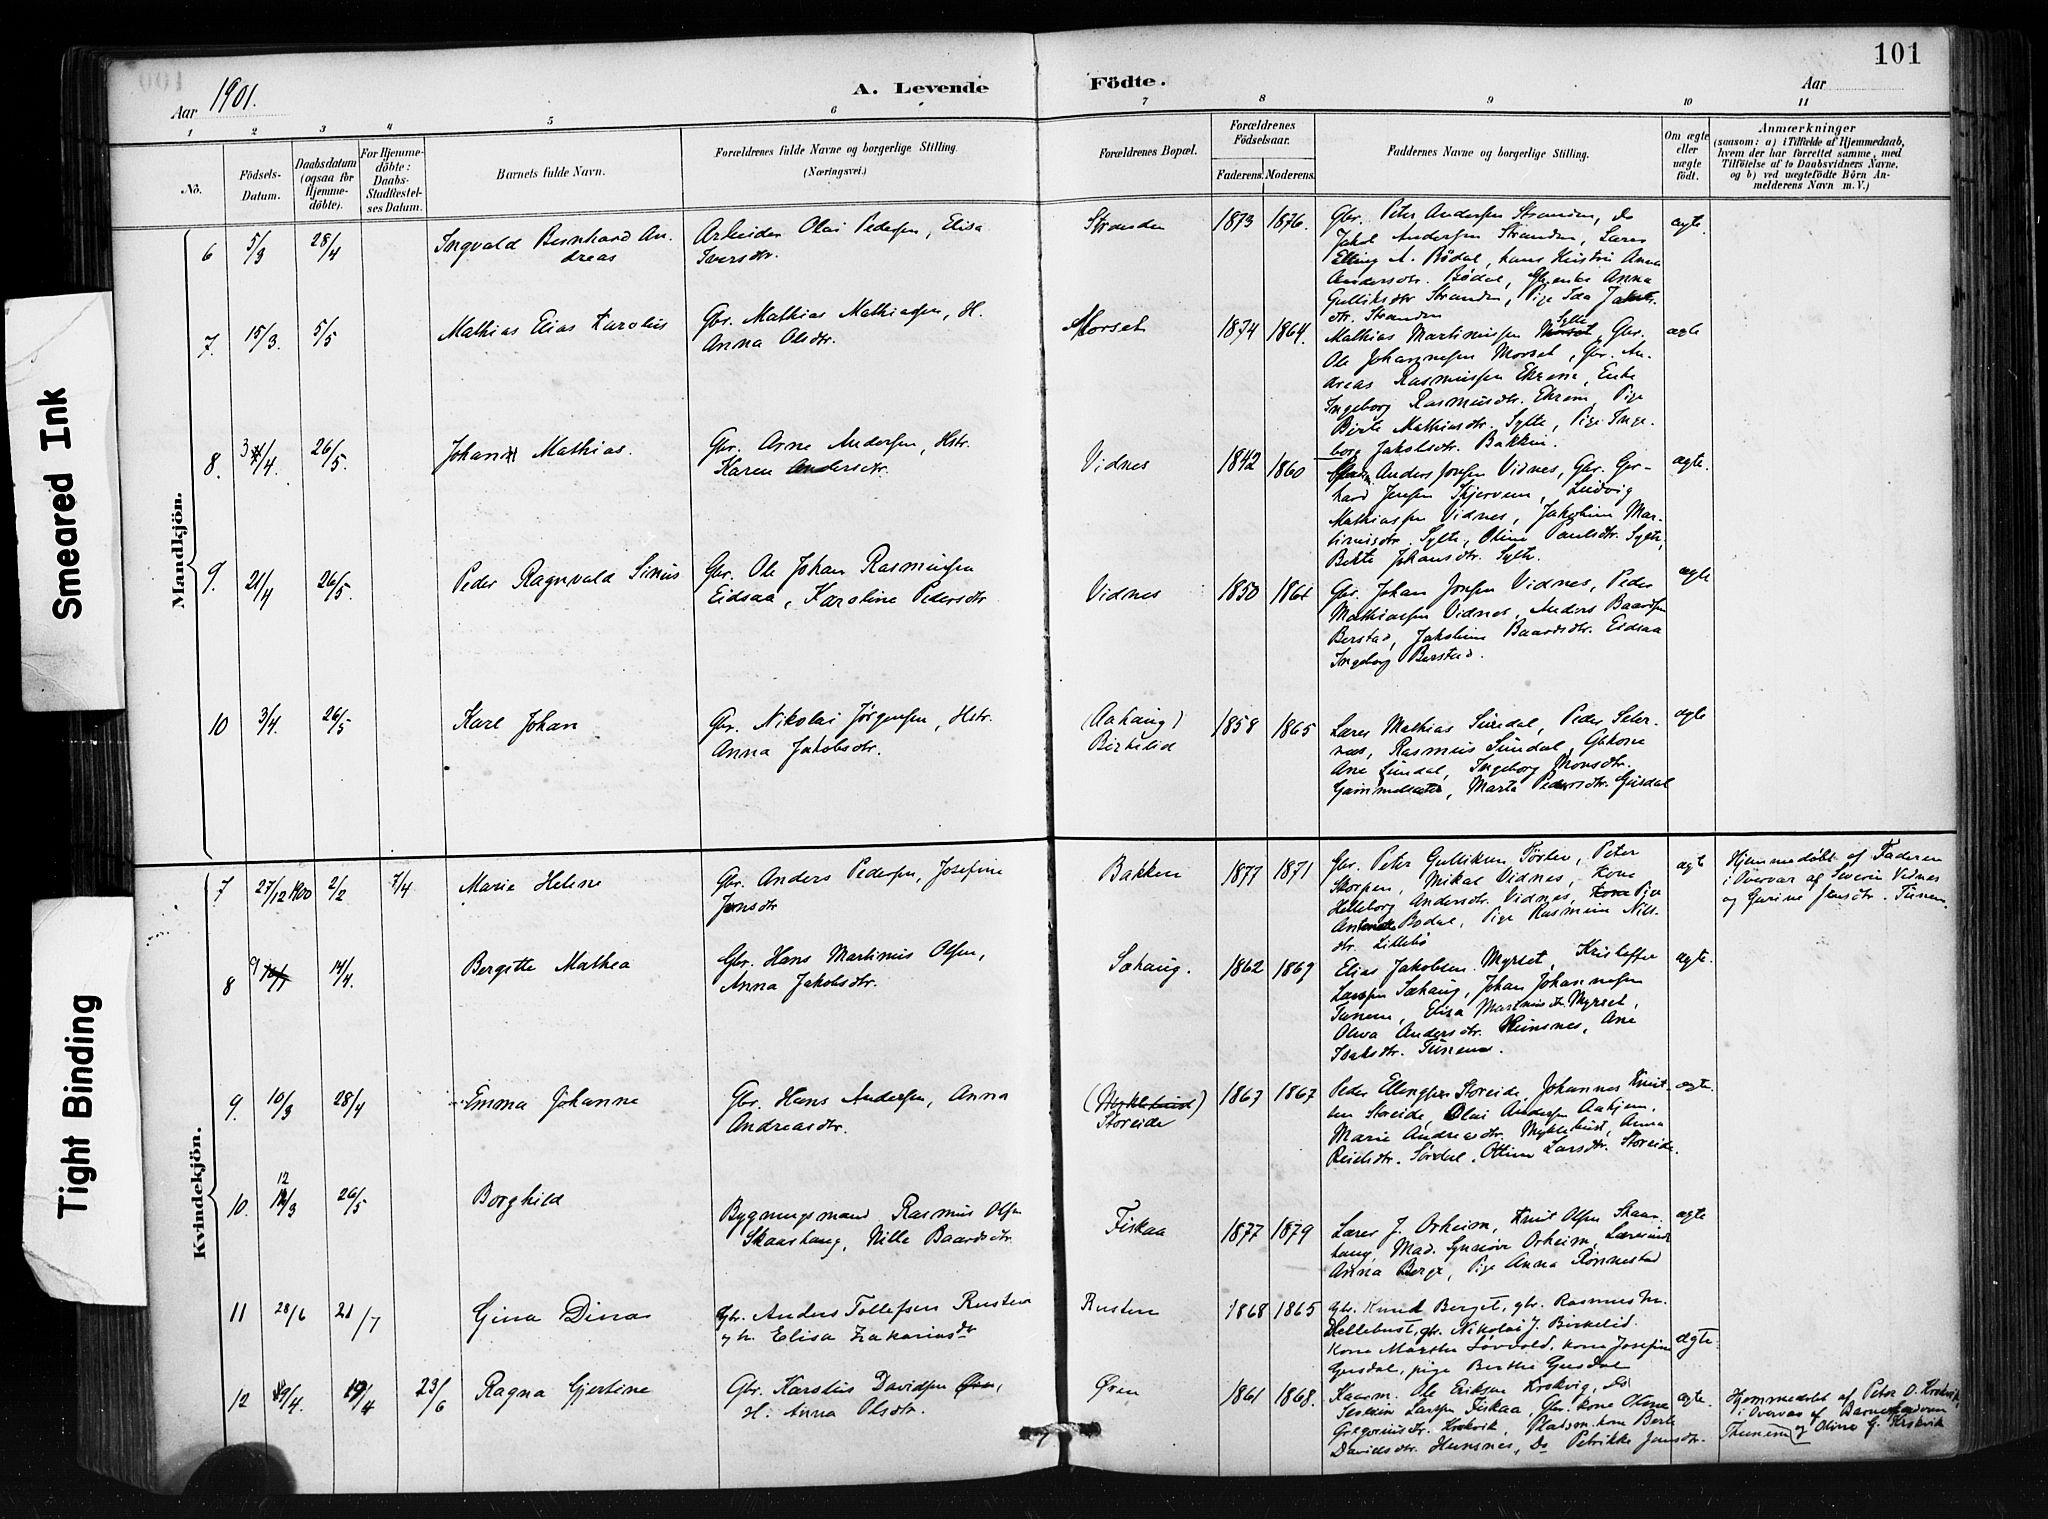 101
Aar 1901.
A. Levende Födte.
Aar
1 2 3 4 5 6 7 8 9 10 11
No.
Födsels-Datum.
Daabsdatum (ogsaa for Hjemme-döbte).
For Hjemme-döbte: Daabs-Stadfæstel-ses Datum.
Barnets fulde Navn.
Forældrenes fulde Navne og borgerlige Stilling. (Næringsvei.)
Forældrenes Bopæl.
Forældrenes Födselsaar.
Faderens. Moderens.
Faddernes Navne og borgerlige Stilling.
Om ægte eller uægte født.
Anmærkninger
(saasom: a) i Tilfælde af Hjemmedaab,
hvem der har forrettet samme, med
Tilföielse af to Daabsvidners Navne.
og b) ved uægtefödte Börn An-
melderens Navn m. V.)
Mandkjön.
6 5/3 28/4 Ingvald Bernhard An-
dreas
Arbeider Olai Pedersen, Elisa
Iversdtr.
Stranden 1873 1876.
Gbr. Peter Andersen Stranden, Do
Jakob Andersen Stranden, Lærer
Elling A. Bödal, hans Hustru Anna
Andersdtr. Bödal, Gbrenke Anna
Gulliksdtr Stranden, Pige Ida Jakobs-
dtr. Stranden
ægte.
7. 15/3 5/5 Mathias Elias Karolus
Gbr. Mathias Mathiassen, H.
Anna Olsdtr.
Morset 1874 1864.
Mathias Martinussen Sylte, Gbr.
Ole Johannesen Morset, Gbr. An-
dreas Rasmussen Ekrem, Enke
Ingeborg Rasmusdtr. Ekrem, Pige
Berte Mathiasdtr. Sylte, Pige Inge-
borg Jakobsdtr. Bakken.
ægte
8. 3/4. 26/5. Johan Mathias.
Gbr. Arne Andersen, Hstr.
Karen Andersdtr.
Vidnes 1842 1860
Anders Jonsen Vidnes, Gbr. Ger-
hard Jensen Skjervem, Ludvig
Mathiassen Vidnes, Jakobine Mar-
tinusdtr. Sylte, Oline Paulsdtr. Sylte,
Berte Johansdtr. Sylte.
ægte.
9. 21/4 26/5. Peder Ragnvald Sinus
Gbr. Ole Johan Rasmussen
Eidsaa, Karoline Pedersdtr
Vidnes 1850 1861
Gbr. Johan Jonsen Vidnes, Peder
Mathiassen Vidnes, Anders Baardsen
Berstad, Jakobine Baardsdtr. Eidsaa
Ingeborg Berstad.
ægte
10 3/4. 26/5 Karl Johan
Gbr. Nikolai Jörgensen, Hstr.
Anna Jakobsdtr.
(Aahaug)
Birkelid 1858 1865
Lærer Mathias Sundal, Peder Seter-
næs, Rasmus Sundal, Gbkone
Ane Sundal, Ingeborg Monsdtr.
Gammelsæter, Marta Pedersdtr. Gusdal
ægte
Kvindekjön.
7 27/12 1900 2/2 7/4 Marie Helene
Gbr. Anders Pedersen, Josefine
Jensdtr
Bakken 1877 1871
Gbr. Peter Gulliksen Törlen, Peter
Skorpen, Mikal Vidnes, Kone
Helleborg Andersdtr. Vidnes, Kone Pige
Antonette Bodal, Pige Rasmine Nils-
dtr. Lillebö
ægte
Hjemmedöbt af Faderen
i Overvær af Severin Vidnes
og Gurine Jensdtr. Tunem.
8 14/4. Bergitte Mathea
Gbr. Hans Martinus Olsen,
Anna Jakobsdtr.
Sæhaug. 1862 1869
Elias Jakobsen Myrset, Kristoffer
Larssen Sæhaug, Johan Johannesen
Tunem, Elisa Martinusdtr. Myrset,
Oliva Andersdtr. Heunsnes, Ane
Isaksdtr. Tunem.
ægte.
9. 10/3 28/4 Emma Johanne
Gbr. Hans Andersen, Anna
Andreasdtr.
(Myklebust)
Storeide 1863 1867
Peder Ellingsen Storeide, Johannes Knut-
sen Storeide, Olai Andersen Aahjem,
Marie Andreasdtr. Myklebust, Anna
Reielsdtr. Sördal, Oline Larsdtr. Storeide.
ægte.
10. 12/3 26/5 Borghild
Bygningsmand Rasmus Olsen
Skaarhaug, Nille Baardsdtr.
Fiskaa 1877 1879
Lærer J. Orheim, Knut Olsen Skaar-
haug, Mad. Synnöve Orheim, Lærerinde
Anna Berge, Pige Anna Rönnestad
ægte
11 28/6 21/7 Gina Dina
Gbr. Anders Tollefsen Rusten
g h. Elisa Zakariasdr
Rusten 1868 1865
gbr. Knud Berget, gbr. Rasmus M.
Hellebust, gbr. Nikolai J. Birkelid.
Kone Marthe Lövold, kone Josefine
Gusdal, pige Berthe Gusdal
ægte.
12 19/4. 19/4 23/6 Ragna Gjertine
Gbr. Karolus Davidsen Ören,
H. Anna Olsdtr.
Ören 1861 1868.
Kaarm. Ole Eriksen Krokvig, Do
Severin Larssen Fiskaa, Gbr. kone Oline
Gregoriusdtr. Krokvik, Pladsm. kone Berte
Davidsdtr. Hunsnes, Do Petrikke Jonsdtr.
ægte.
Hjemmedöbt af Peter O. Krokvik,
i Overvær af Barne
Thunem og Oline G. Krokvik
Smeared Ink
Tight Binding